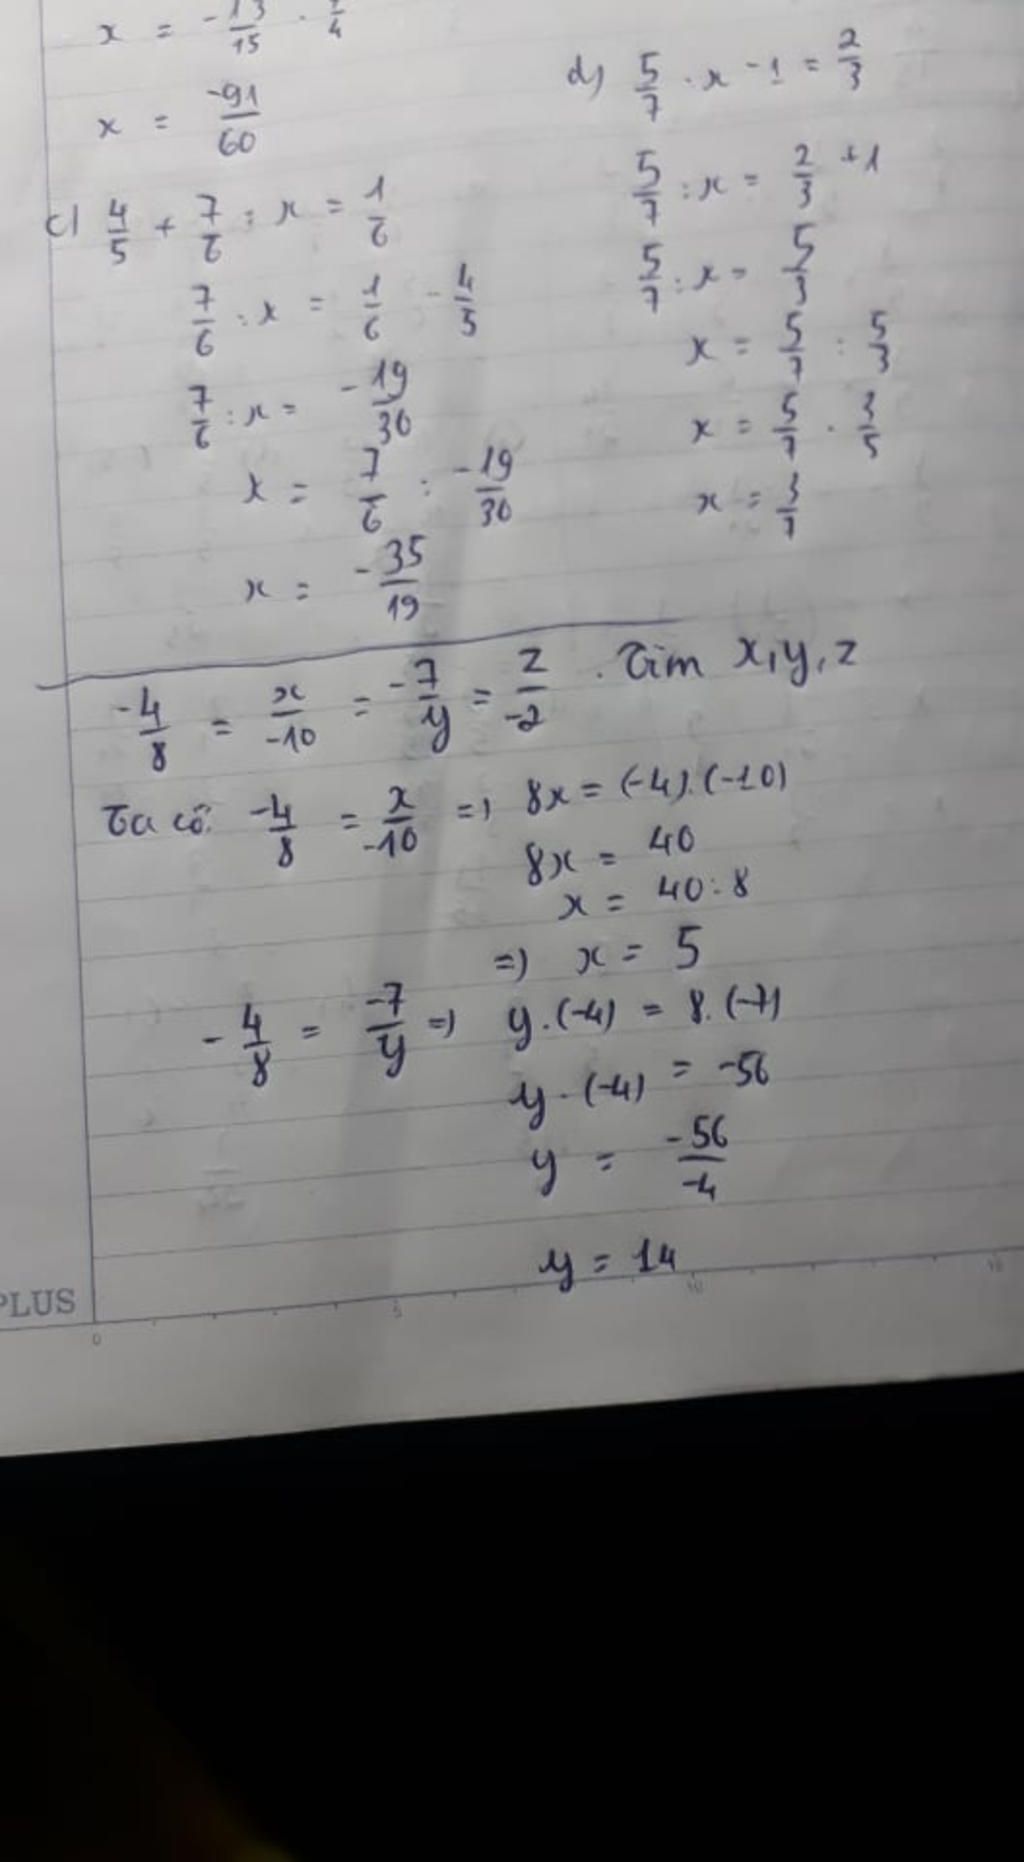 x = -13/15 . 7/4
x = -91/60
c) 4/5 + 7/6 : x = 1/6
7/6 : x = 1/6 - 4/5
7/6 : x = -19/30
x = 7/6 : -19/30
x = -35/19
d) 5/7 . x - 1 = 2/3
5/7 : x = 2/3 + 1
5/7 : x = 5/3
x = 5/7 : 5/3
x = 5/7 . 3/5
x = 3/7
-4/8 = x/-10 = -7/y = z/-2 . Tìm x, y, z
Ta có: -4/8 = x/-10 => 8x = (-4).(-10)
8x = 40
x = 40 : 8
=> x = 5
-4/8 = -7/y => y.(-4) = 8.(-7)
y.(-4) = -56
y = -56/-4
y = 14
PLUS
0 5 10 15